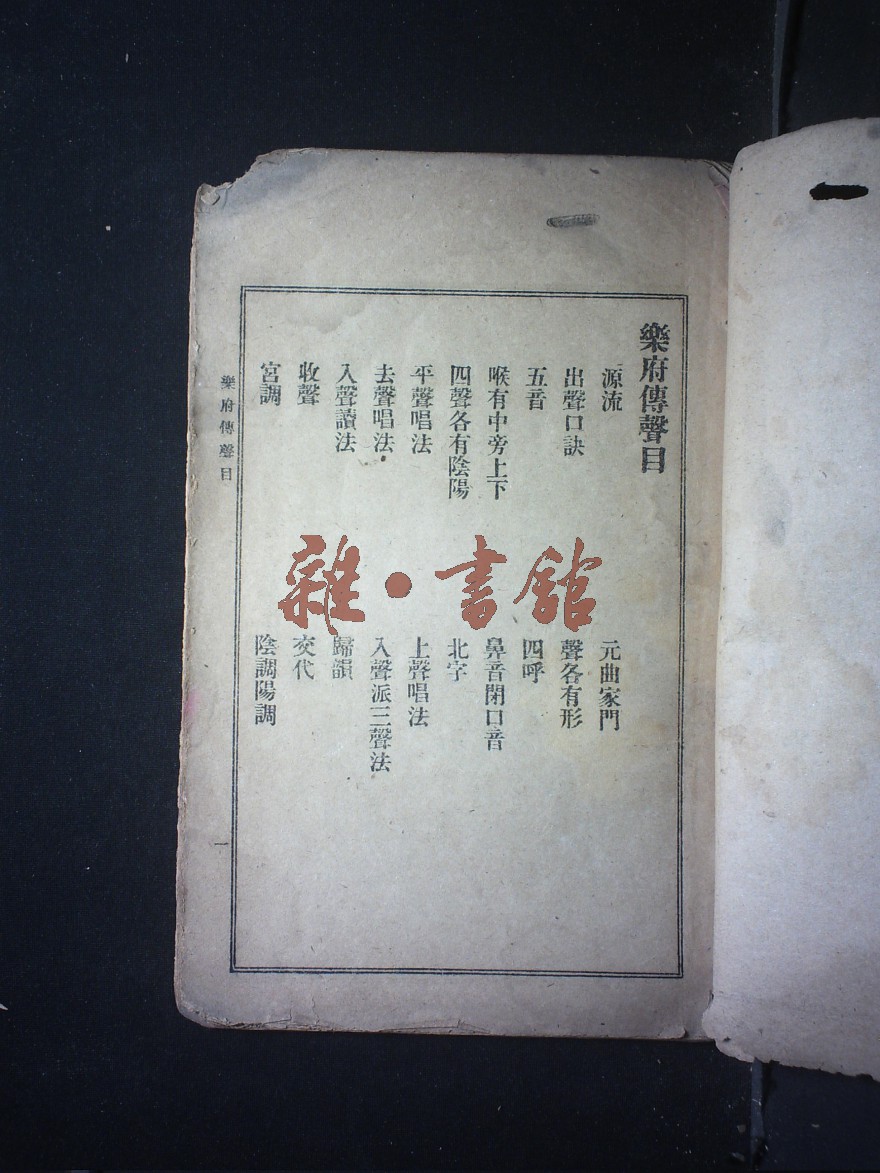 樂府傳聲目
源流
元曲家門
出聲口訣
聲各有形
五音
四呼
喉有中旁上下
鼻音閉口音
四聲各有陰陽
北字
平聲唱法
上聲唱法
去聲唱法
入聲派三聲法
入聲讀法
歸韻
收聲
交代
宮調
陰調陽調
樂府傳聲目
一
雜·書館